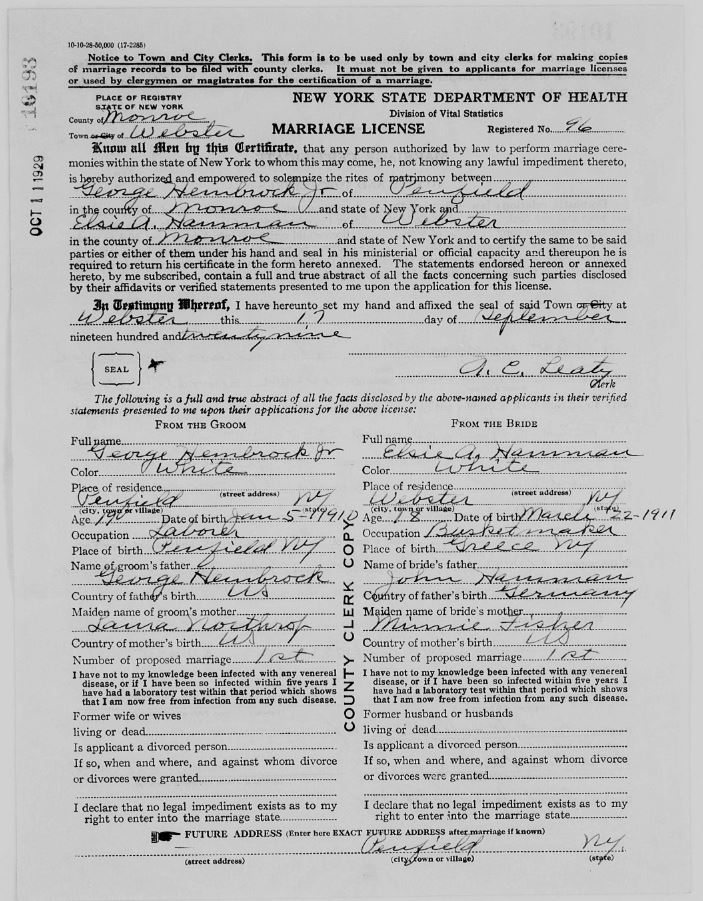 10-10-28-50,000 (17-2285)
Notice to Town and City Clerks. This form is to be used only by town and city clerks for making copies
of marriage records to be filed with county clerks. It must not be given to applicants for marriage licenses
or used by clergymen or magistrates for the certification of a marriage.
PLACE OF REGISTRY
STATE OF NEW YORK
NEW YORK STATE DEPARTMENT OF HEALTH
County of Monroe
Division of Vital Statistics
Town or City of Webster
MARRIAGE LICENSE
Registered No. 96
Know all Men by this Certificate, that any person authorized by law to perform marriage cere-
monies within the state of New York to whom this may come, he, not knowing any lawful impediment thereto,
is hereby authorized and empowered to solemnize the rites of matrimony between
George Hembrock Jr of Penfield
in the county of Monroe and state of New York and
Elsie A. Hamman of Webster
in the county of Monroe and state of New York and to certify the same to be said
parties or either of them under his hand and seal in his ministerial or official capacity and thereupon he is
required to return his certificate in the form hereto annexed. The statements endorsed hereon or annexed
hereto, by me subscribed, contain a full and true abstract of all the facts concerning such parties disclosed
by their affidavits or verified statements presented to me upon the application for this license.
In Testimony Whereof, I have hereunto set my hand and affixed the seal of said Town or City at
Webster this 17 day of September
nineteen hundred and twenty nine
SEAL
A. C. Leaty
Clerk
The following is a full and true abstract of all the facts disclosed by the above-named applicants in their verified
statements presented to me upon their applications for the above license:
FROM THE GROOM
Full name
George Hembrock Jr
Color White
Place of residence
(street address)
Penfield NY
(city, town or village) (state)
Age 19 Date of birth Jan 5-1910
Occupation Laborer
Place of birth Penfield NY
Name of groom's father
George Hembrock
Country of father's birth US
Maiden name of groom's mother
Laura Northrop
Country of mother's birth US
Number of proposed marriage 1st
I have not to my knowledge been infected with any venereal
disease, or if I have been so infected within five years I
have had a laboratory test within that period which shows
that I am now free from infection from any such disease.
Former wife or wives
living or dead
Is applicant a divorced person
If so, when and where, and against whom divorce
or divorces were granted
I declare that no legal impediment exists as to my
right to enter into the marriage state
COUNTY CLERK COPY
FROM THE BRIDE
Full name
Elsie A. Hamman
Color White
Place of residence
(street address)
Webster NY
(city, town or village) (state)
Age 18 Date of birth March 22-1911
Occupation Basket maker
Place of birth Greece NY
Name of bride's father
John Hamman
Country of father's birth Germany
Maiden name of bride's mother
Minnie Fisher
Country of mother's birth US
Number of proposed marriage 1st
I have not to my knowledge been infected with any venereal
disease, or if I have been so infected within five years I
have had a laboratory test within that period which shows
that I am now free from infection from any such disease.
Former husband or husbands
living or dead
Is applicant a divorced person
If so, when and where, and against whom divorce
or divorces were granted
I declare that no legal impediment exists as to my
right to enter into the marriage state
FUTURE ADDRESS (Enter here EXACT FUTURE ADDRESS after marriage if known)
Penfield NY.
(street address) (city, town or village) (state)
OCT 11 1929